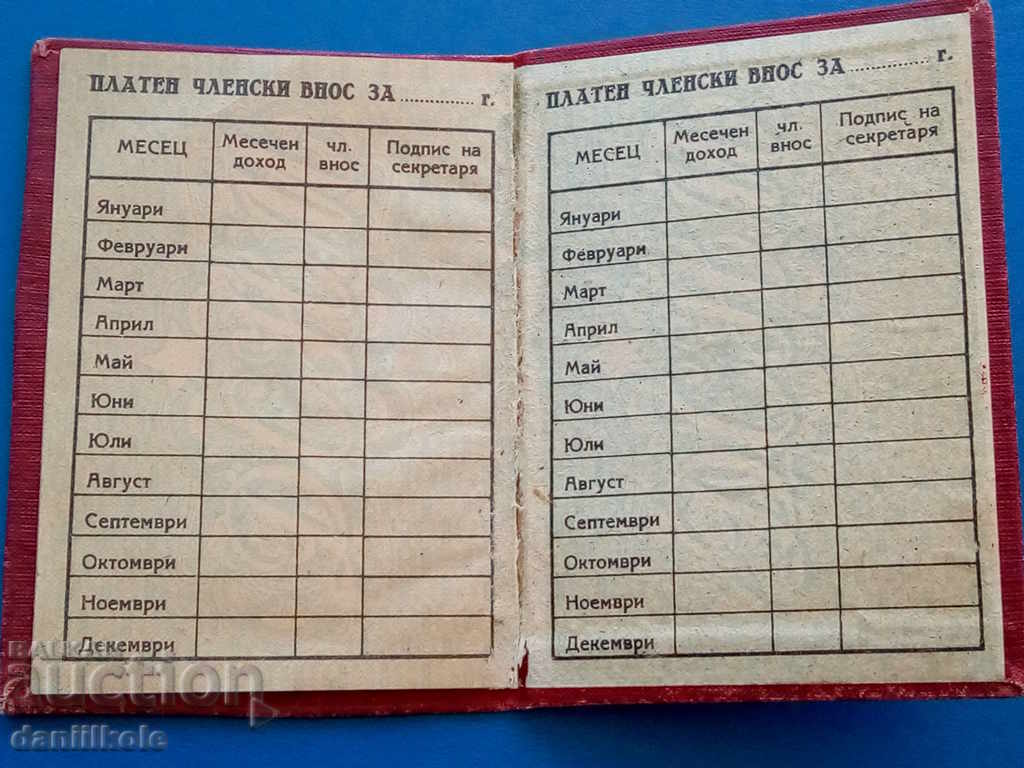 ПЛАТЕН ЧЛЕНСКИ ВНОС ЗА ............... г.
МЕСЕЦ Месечен доход чл. внос Подпис на секретаря
Януари
Февруари
Март
Април
Май
Юни
Юли
Август
Септември
Октомври
Ноември
Декември
ПЛАТЕН ЧЛЕНСКИ ВНОС ЗА ............... г.
МЕСЕЦ Месечен доход чл. внос Подпис на секретаря
Януари
Февруари
Март
Април
Май
Юни
Юли
Август
Септември
Октомври
Ноември
Декември
auction
daniilkole